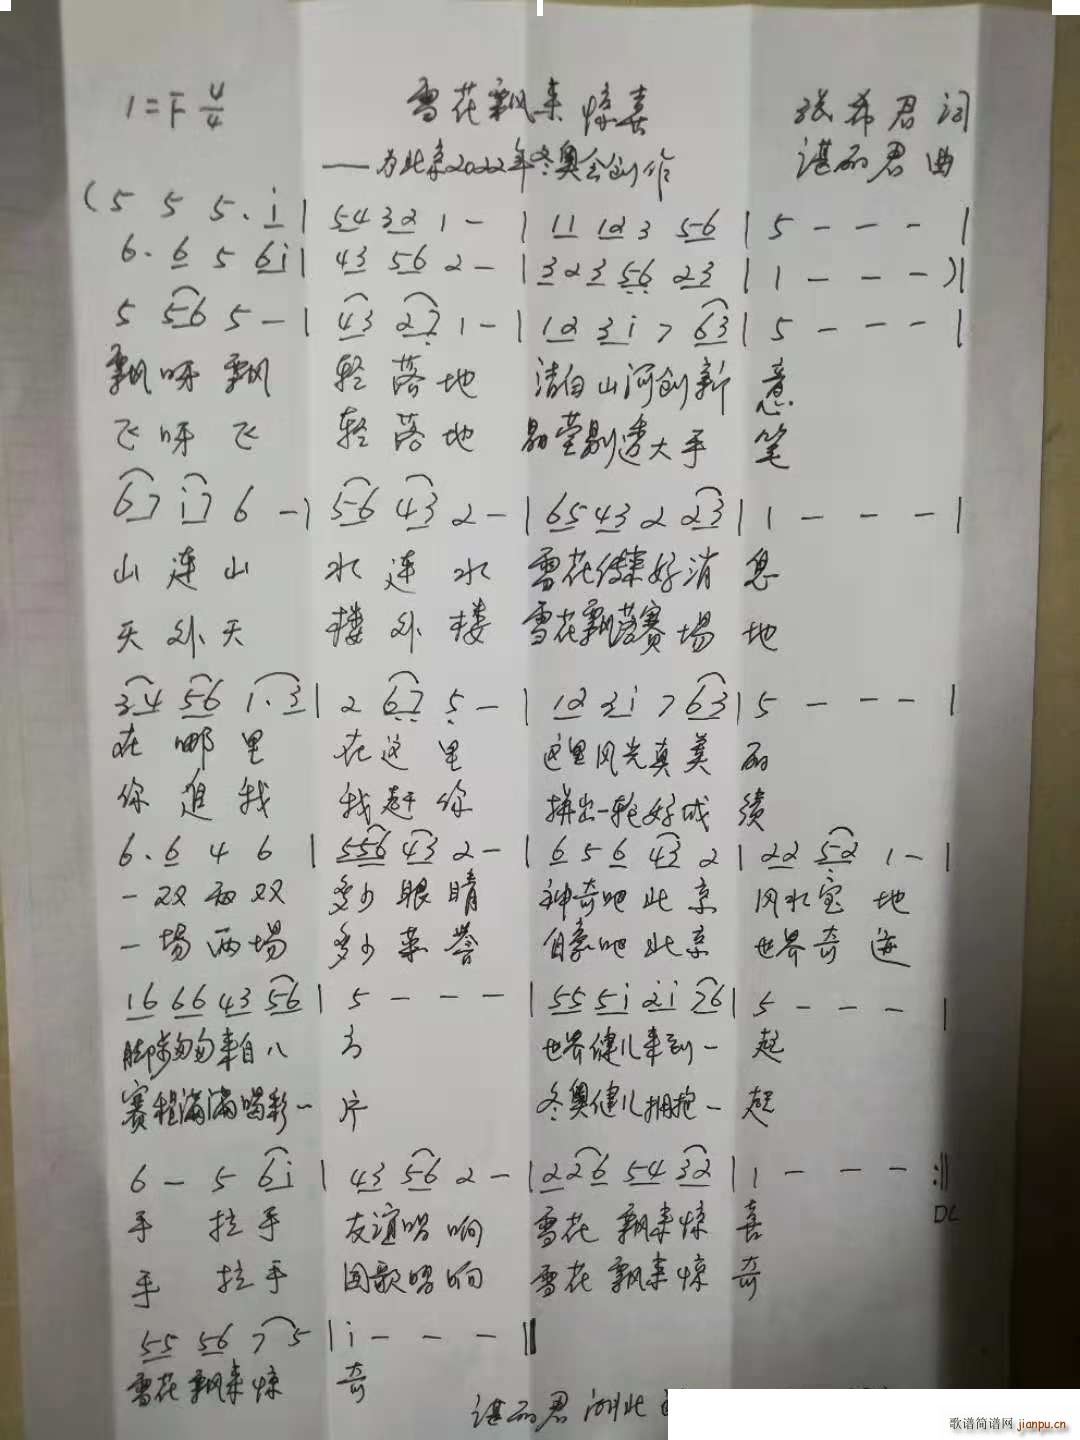 1=F 4/4 雪花飘来惊喜 张希君词
——为北京2022年冬奥会创作 谌丽君曲
(5 5 5. i | 54 32 1 - | 11 12 3 56 | 5 - - - |
6. 6 5 6i | 43 56 2 - | 3 2 3 56 23 | 1 - - - )|
5 56 5 - | 43 27 1 - | 12 3i 7 63 | 5 - - - |
飘呀飘 轻落地 洁白山河创新意
飞呀飞 轻落地 晶莹剔透大手笔
67 i7 6 - | 56 43 2 - | 65 43 2 23 | 1 - - - |
山连山 水连水 雪花传来好消息
天外天 楼外楼 雪花飘落赛场地
34 56 1. 3 | 2 67 5 - | 12 3i 7 63 | 5 - - - |
在哪里 在这里 这里风光真美丽
你追我 我赶你 拼出一轮好成绩
6. 6 4 6 | 556 43 2 - | 6 5 6 43 2 | 22 52 1 - |
一双两双 多少眼睛 神奇吧北京 风水宝地
一场两场 多少荣誉 自豪吧北京 世界奇迹
16 66 43 56 | 5 - - - | 55 5i 2i 76 | 5 - - - |
脚步匆匆来自八方 世界健儿来到一起
赛程满满喝彩一片 冬奥健儿拥抱一起
6 - 5 6i | 43 56 2 - | 226 54 32 | 1 - - - :||
DC
手拉手 友谊唱响 雪花飘来惊喜
手拉手 国歌唱响 雪花飘来惊奇
55 56 7 5 | i - - - ||
雪花飘来惊奇
谌丽君 湖北
歌谱简谱网 jianpu.cn